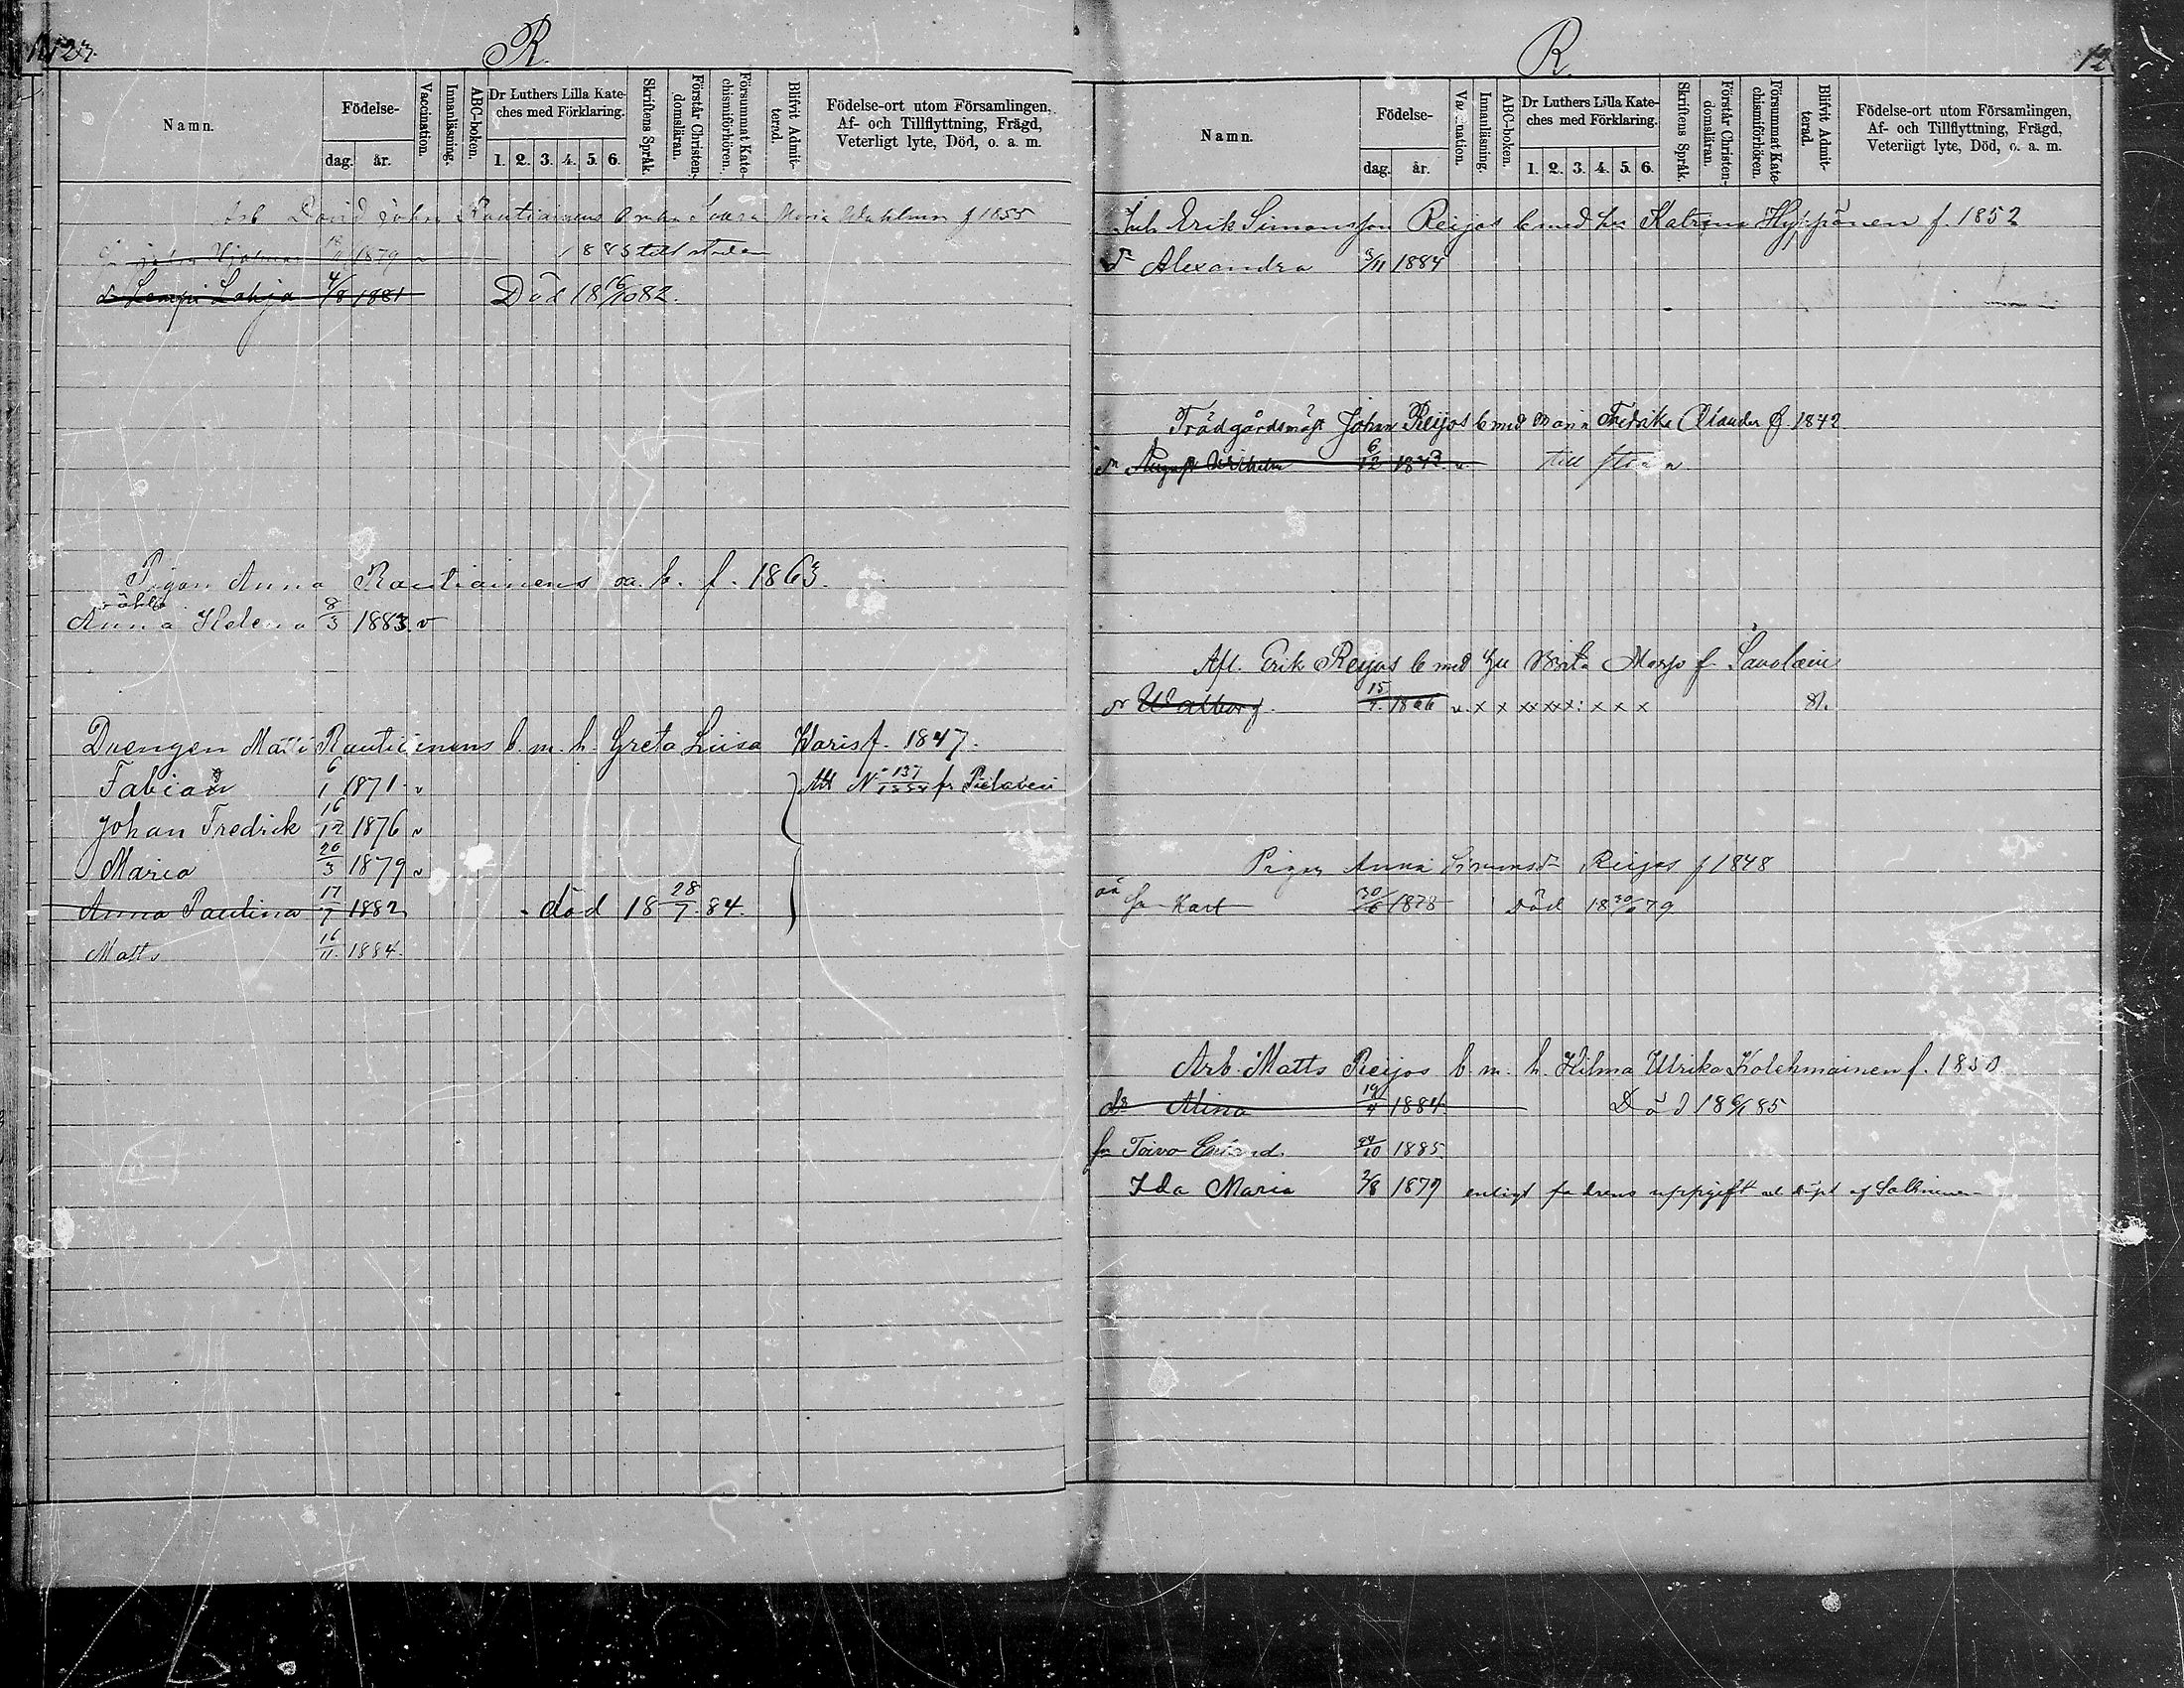 123.
R.
Namn.
Födelse-
dag. år.
Vaccination.
Innanläsning.
ABC-boken.
Dr Luthers Lilla Kateches med Förklaring.
1. 2. 3. 4. 5. 6.
Skriftens Språk.
Förstår Christendomsläran.
Försummat Katechismiförhören.
Blifvit Admitterad.
Födelse-ort utom Församlingen, Af- och Tillflyttning, Frägd, Veterligt lyte, Död, o. a. m.
Arb David John Rautiainens Maria f 1855
Hjalmar 1879 1885 till
dr Lempi Lahja 4/8 1881 Död 18 16/10 82.
Pigan Anna Rautiainens oa. b. f. 1863.
oäkta
Anna Helena 8/3 1883. v
Drengen Matti Rautiainens b. m. h. Greta Liisa Haris f. 1847.
Fabian 6/1 1871 v Att N 137 fr Pielavesi
Johan Fredrik 16/12 1876 v
Maria 20/3 1879 v
Anna Paulina 17/7 1882 död 18 28/7 84.
Matts 16/11 1884.
R.
12
Namn.
Födelse-
dag. år.
Vaccination.
Innanläsning.
ABC-boken.
Dr Luthers Lilla Kateches med Förklaring.
1. 2. 3. 4. 5. 6.
Skriftens Språk.
Förstår Christendomsläran.
Försummat Katechismiförhören.
Blifvit Admitterad.
Födelse-ort utom Församlingen, Af- och Tillflyttning, Frägd, Veterligt lyte, Död, o. a. m.
Inh Erik Simonsson Reijos b med hu Katrina Hyppönen f. 1852
dr Alexandra 3/11 1884
Trädgårdsmäst Johan Reijos b med Maria Fredrika Olander f. 1842
sn August Wilhelm 6/12 1873 v. till
Afl. Erik Reijos b med hu Brita Marjo f. Savolain
dr Walborg 15/7 1866 v. x x xx xxx: x x x
Pigan Anna Simonsdr Reijos f 1848
oä
So Karl 30/6 1878 Död 18 30/6 79
Arb. Matts Reijos b. m. h. Hilma Ulrika Kolehmainen f. 1850
dr Mina 19/4 1884 Död 18 6/1 85
sn Toivo 24/10 1885
Ida Maria 2/8 1879 enligt fadrens uppgift döpt af